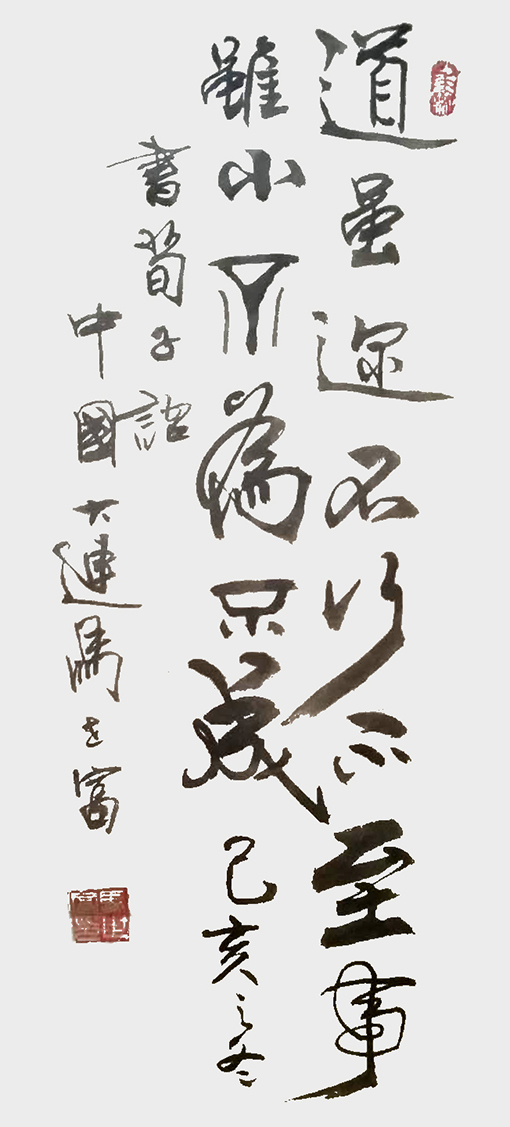 道虽迩不行不至事
雖小不為不成 己亥之冬
書荀子語
中國大連馬富